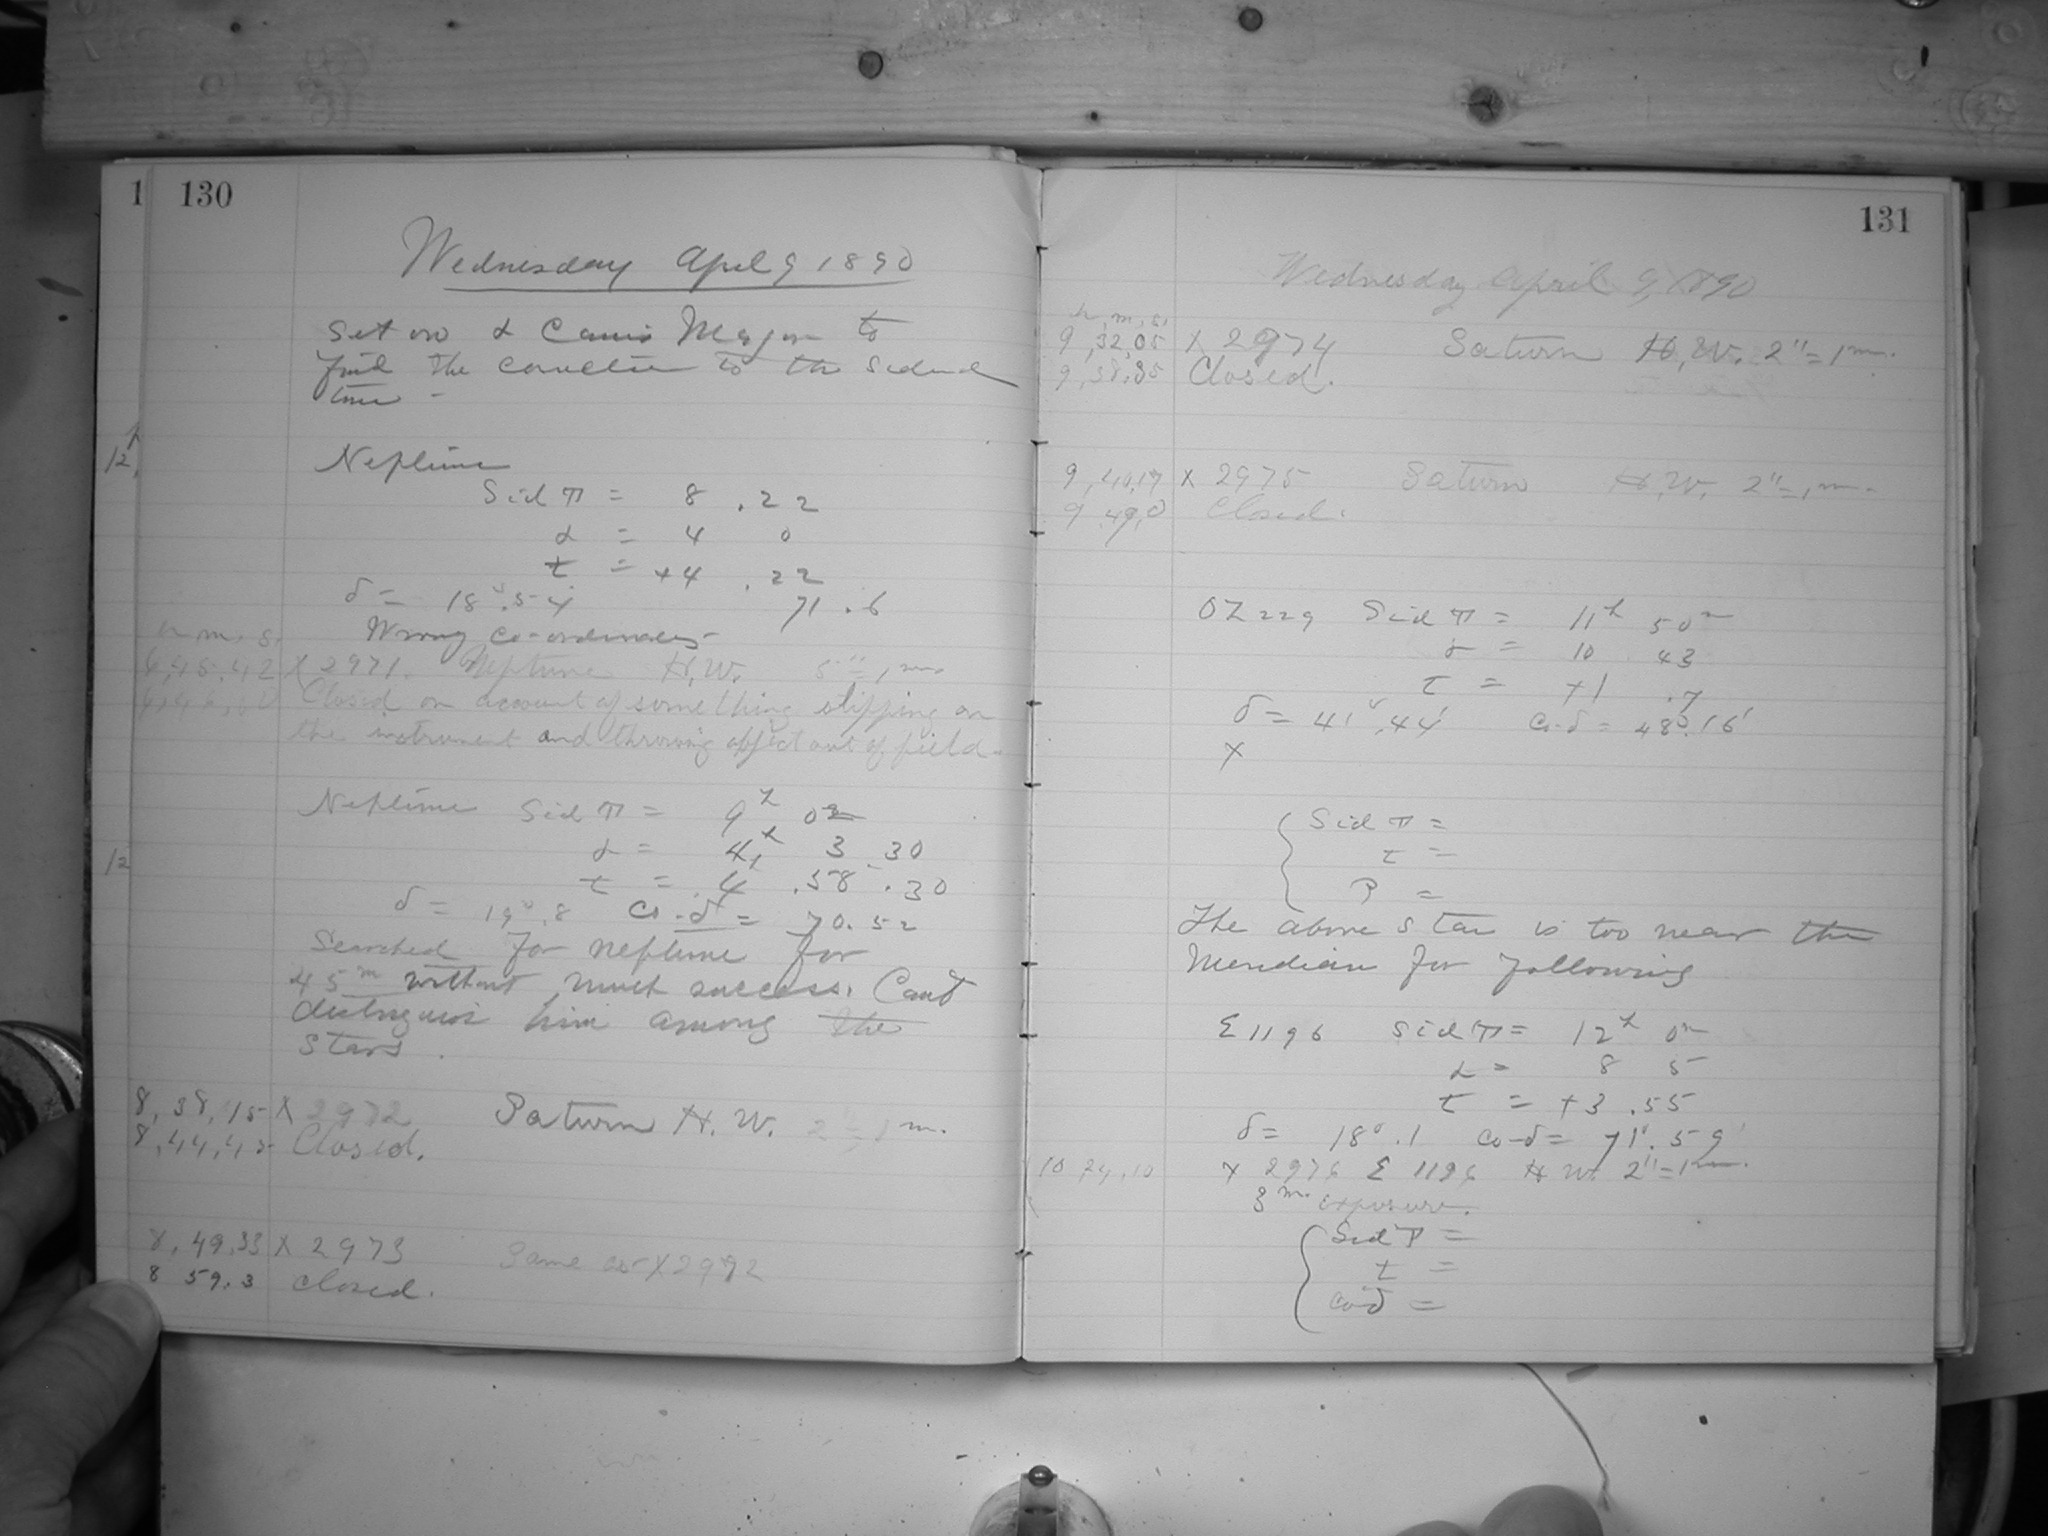 1 130
Wednesday April 9 1890
Set on α Canis Major to
find the correction to the sidereal
time -
12
Neptune
Sid T = 8 . 22
α = 4 0
t = +4 . 22
δ = 18° . 54 71 . 6
Wrong co-ordinates
h m. s.
6,45,42 X 2971. Neptune H.W. 5" = 1 m
Closed on account of something slipping on
the instrument and throwing object out of field.
Neptune Sid T = 9h 02
12 α = 4h 3 . 30
t = 4 . 58 . 30
δ = 19° . 8 co-δ = 70 . 52
Searched for Neptune for
45m without much success. Can't
distinguish him among the
stars.
8, 38, 15 X 2972 Saturn H. W. 2" = 1 m.
8, 44, 45 Closed.
8, 49, 33 X 2973 Same as X 2972
8 59. 3 closed.
131
Wednesday April 9, 1890
h, m, s,
9, 32, 05 X 2974 Saturn H. W. 2" = 1 m.
9, 38, 35 Closed.
9, 40, 17 X 2975 Saturn H. W. 2" = 1 m.
9 49, 0 Closed.
OΣ 229 Sid T = 11h 50m
α = 10 43
t = +1 . 7
δ = 41° . 44' co-δ = 48° . 16'
X
Sid T =
t =
P =
The above star is too near the
Meridian for following
Σ 1196 Sid T = 12h 0m
α = 8 5
t = +3 . 55
δ = 18° . 1 co-δ = 71° . 59'
10 24, 10 X 2976 Σ 1196 H W. 2" = 1 m.
3m. exposure.
Sid T =
t =
co-δ =